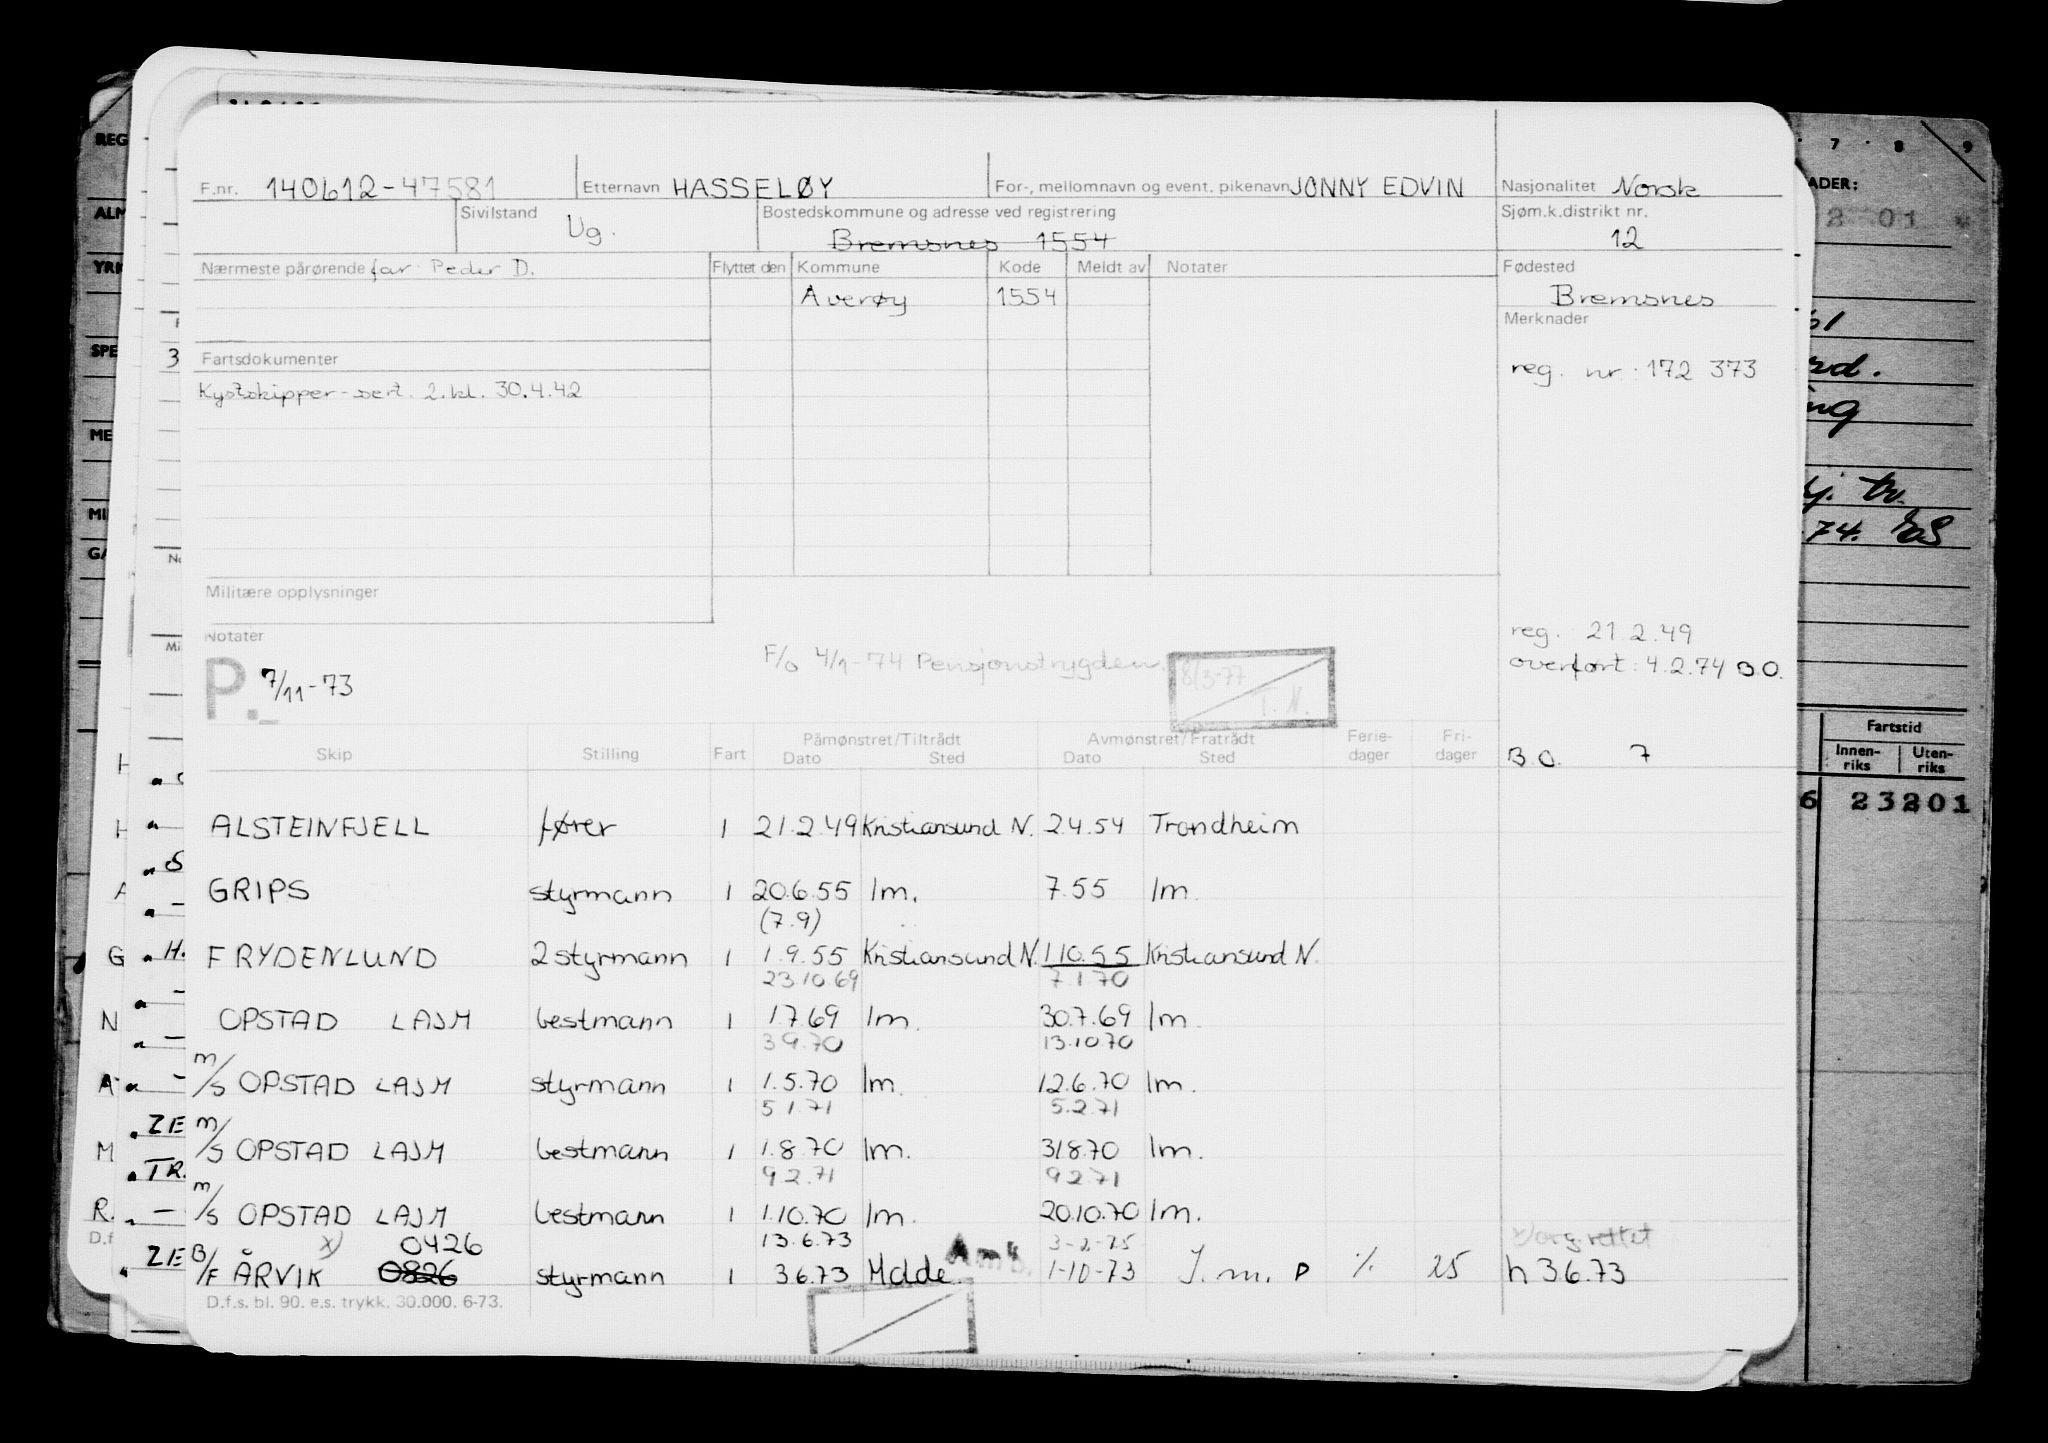 F.nr. 140612-47581 Etternavn HASSELØY For-, mellomnavn og event. pikenavn JONNY EDVIN Nasjonalitet Norsk
Sivilstand Ug. Bostedskommune og adresse ved registrering Sjøm.k.distrikt nr.
Bremsnes 1554 12
Nærmeste pårørende far: Peder D. Flyttet den Kommune Kode Meldt av Notater Fødested
Averøy 1554 Bremsnes
Merknader
Fartsdokumenter reg. nr.: 172 373
Kystskipper-sert. 2.kl. 30.4.42
Militære opplysninger
Notater
reg. 21.2.49
F/o 4/1-74 Pensjonstrygden. 8/3-77 overført: 4.2.74 B.O.
P. 7/11-73 T. N.
Påmønstret/Tiltrådt Avmønstret/Fratrådt Ferie- Fri-
Skip Stilling Fart Dato Sted Dato Sted dager dager B.O. 7
ALSTEINFJELL fører 1 21.2.49 Kristiansund N. 2.4.54 Trondheim
GRIPS styrmann 1 20.6.55 Im. 7.55 Im.
(7.9)
FRYDENLUND 2 styrmann 1 1.9.55 Kristiansund N. 1.10.55 Kristiansund N.
23.10.69 7.1.70
OPSTAD LAJM bestmann 1 1.7.69 Im. 30.7.69 Im.
3.9.70 13.10.70
m/s OPSTAD LAJM styrmann 1 1.5.70 Im. 12.6.70 Im.
5.1.71 5.2.71
m/s OPSTAD LAJM bestmann 1 1.8.70 Im. 31.8.70 Im.
9.2.71 9.2.71
m/s OPSTAD LAJM bestmann 1 1.10.70 Im. 20.10.70 Im.
x) 0426 13.6.73 Amb. 3-2-75 x) org. rettet
B/F ÅRVIK 0826 styrmann 1 3.6.73 Molde 1-10-73 I.m. P % 25 h 3.6.73
D.f.s. bl. 90. e.s. trykk. 30.000. 6-73.
REG
ALM
YRK
SPE
ME
MI
GA
7 8 9
ADER:
2 01 *
61
74. ES
Fartstid
Innen-riks Uten-riks
6 23201